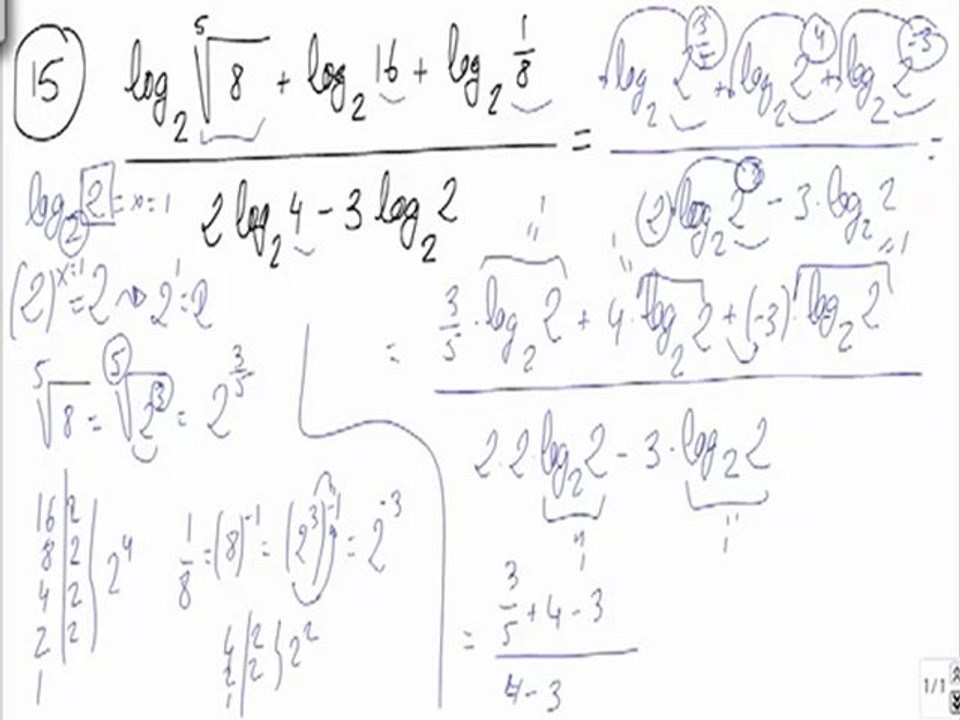 15
(log₂ ⁵√8 + log₂ 16 + log₂ 1/8) / (2 log₂ 4 - 3 log₂ 2) = (log₂ 2^(3/5) + log₂ 2^4 + log₂ 2^(-3)) / ((2) log₂ 2^2 - 3·log₂ 2) =
log₂ 2 = x = 1
(2)^(x=1) = 2 → 2^1 = 2
= (3/5 · log₂ 2 + 4 · log₂ 2 + (-3) · log₂ 2) / (2·2·log₂ 2 - 3·log₂ 2)
"1 "1 "1 "1
⁵√8 = ⁵√2^3 = 2^(3/5)
16 | 2
8 | 2
4 | 2
2 | 2
1
} 2^4
1/8 = (8)^-1 = (2^3)^-1 = 2^-3
4 | 2
2 | 2
1
} 2^2
= (3/5 + 4 - 3) / (4 - 3)
1/1